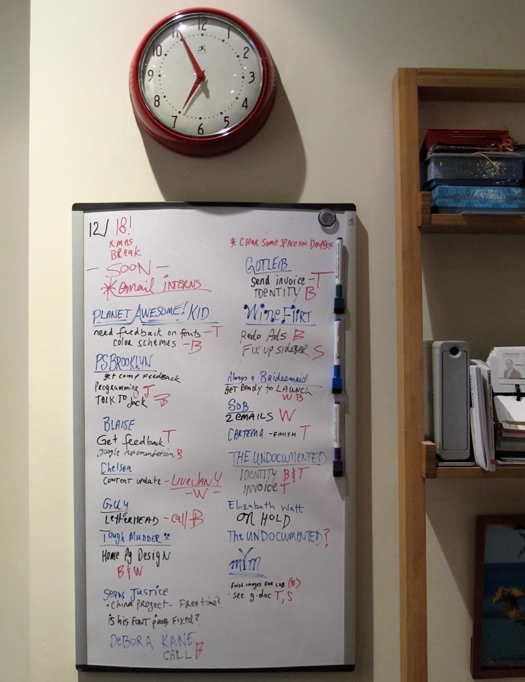 12
1
2
3
4
5
6
7
8
9
10
11
12/18!
XMAS
BREAK
- SOON -
* email INTERNS
PLANET AWESOME! KID
need feedback on fonts - T
color schemas - B
PS BROOKLYN
get comp feedback
Programming T
TALK TO Jack B
BLAISE
Get feedback T
google B
Chelsea
CONTENT update - LIVE JAN 4
- W -
GUY
LETTERHEAD - call B
Tough MUDDER
Home Pg DESIGN
B & W
Sears Justice
China project -
is his FONT prob FIXED?
DEBORA KANE
CALL B
* CLEAR SOME SPACE ON DROPBOX
GOTLEIB
send invoice - T
IDENTITY B
WINE FLIRT
Redo Ads B
FIX UP SIDEBAR S
Always a Bridesmaid
GET READY to LAUNCH
W B
SOB
2 EMAILS W
CARTEMA - FINISH T
THE UNDOCUMENTED
IDENTITY B & T
INVOICE T
Elizabeth Watt
ON HOLD
The UNDOCUMENTED?
MYM
- find images for (B)
- see g-doc T, S